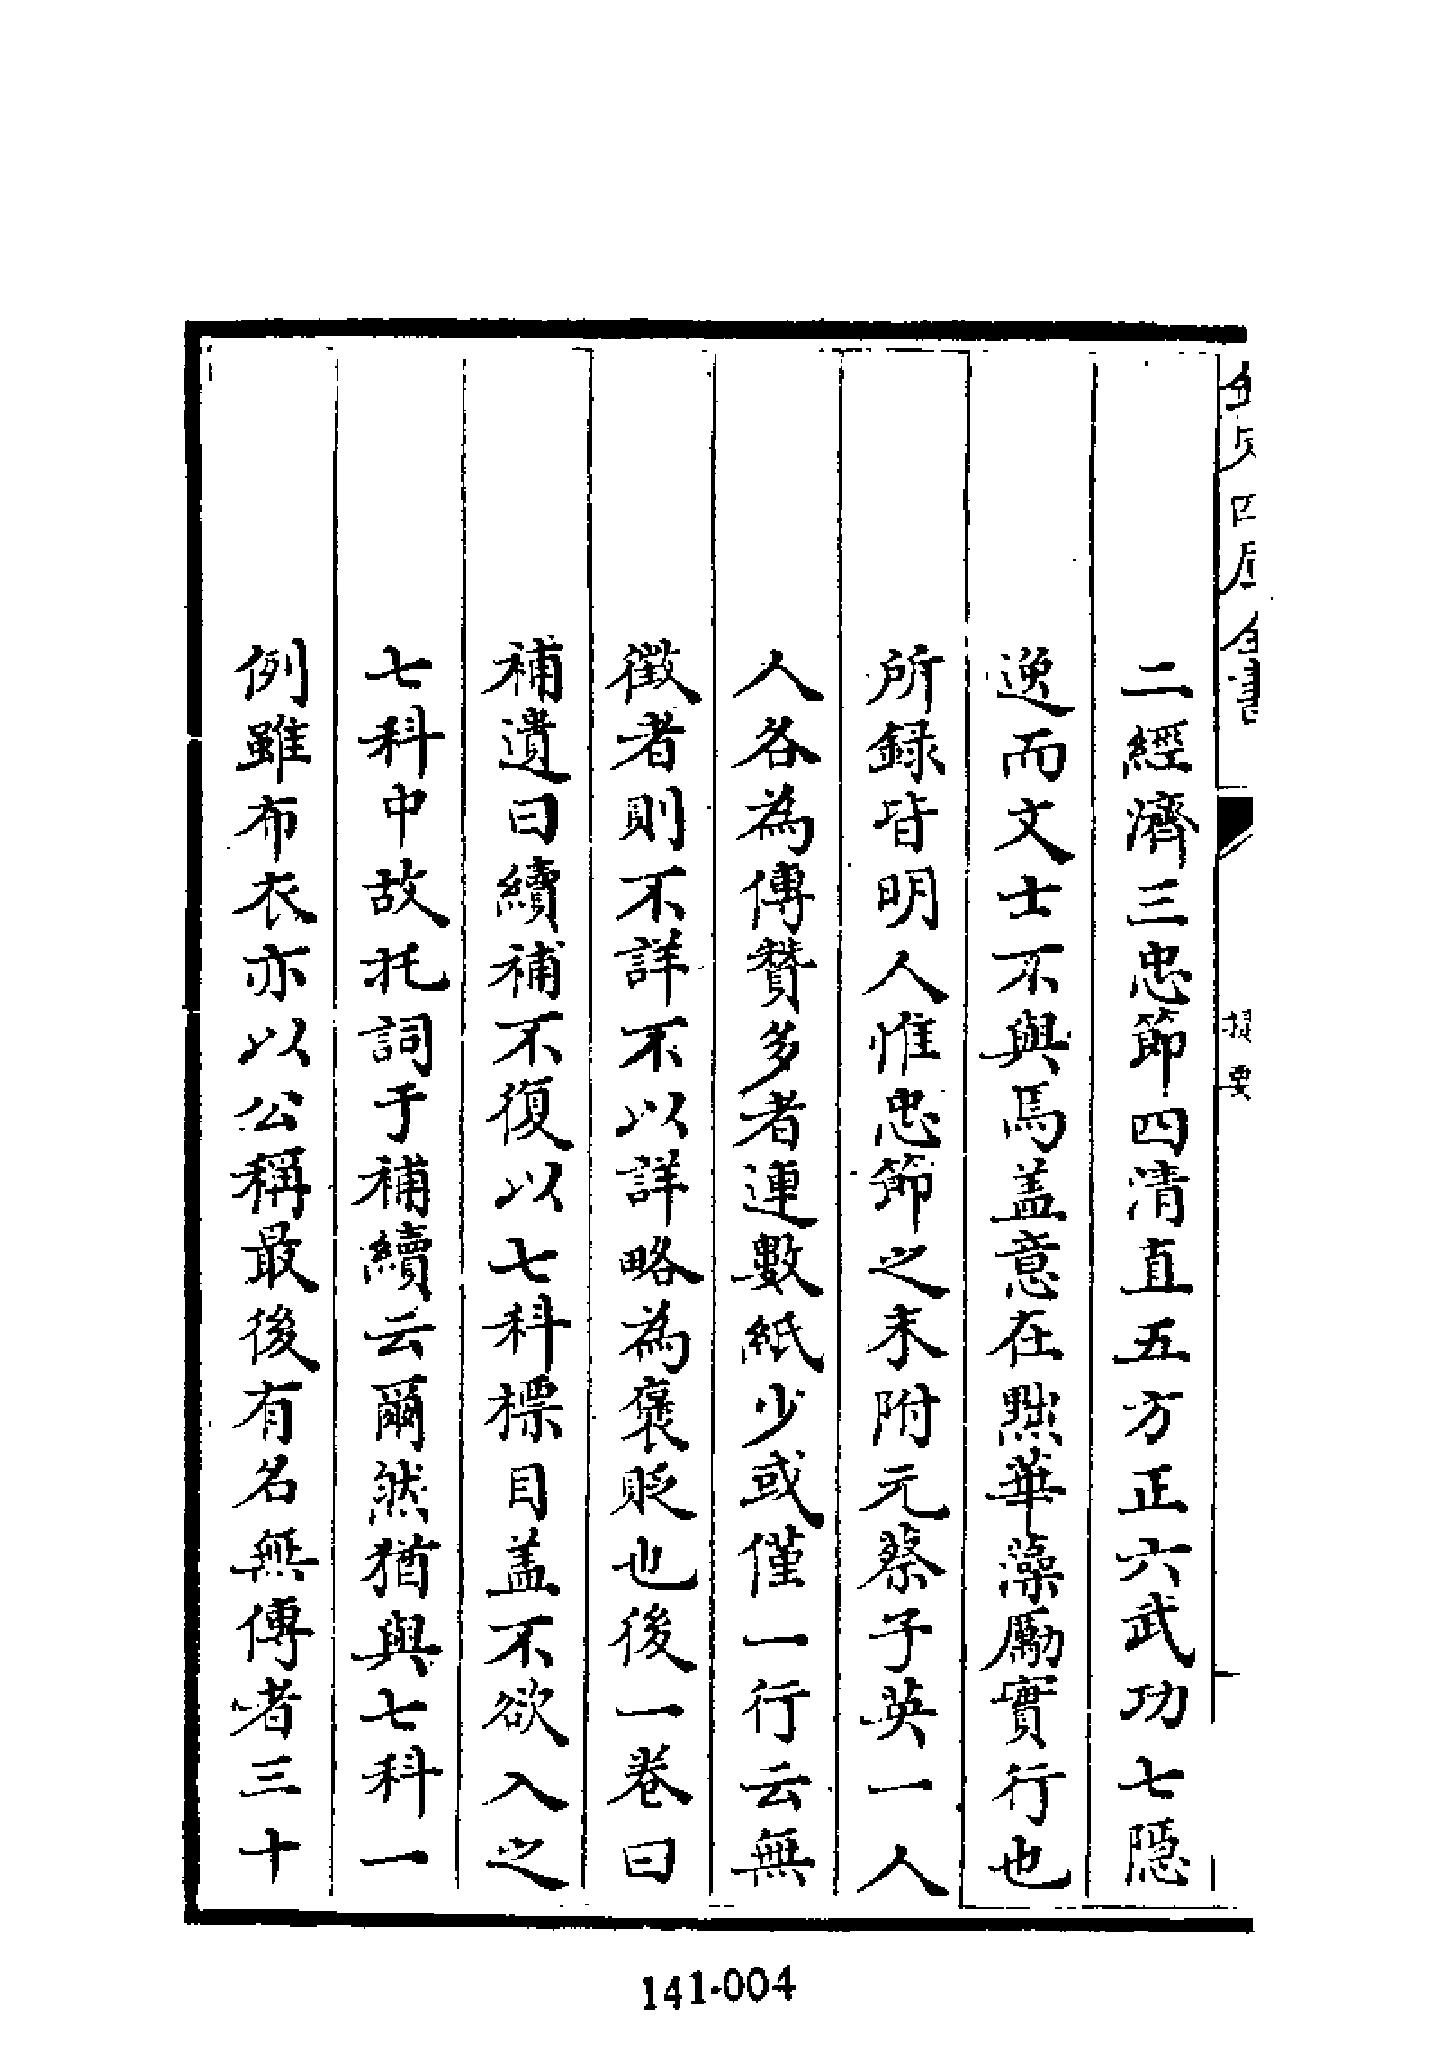 欽定四庫全書
提要
二經濟三忠節四清直五方正六武功七隱
逸而文士不與焉盖意在黜華藻勵實行也
所録皆明人惟忠節之末附元蔡子英一人
人各為傳贊多者連數紙少或僅一行云無
徵者則不詳不以詳略為褒貶也後一卷曰
補遺曰續補不復以七科標目盖不欲入之
七科中故托詞于補續云爾然猶與七科一
例雖布衣亦以公稱最後有名無傳者三十
141-004